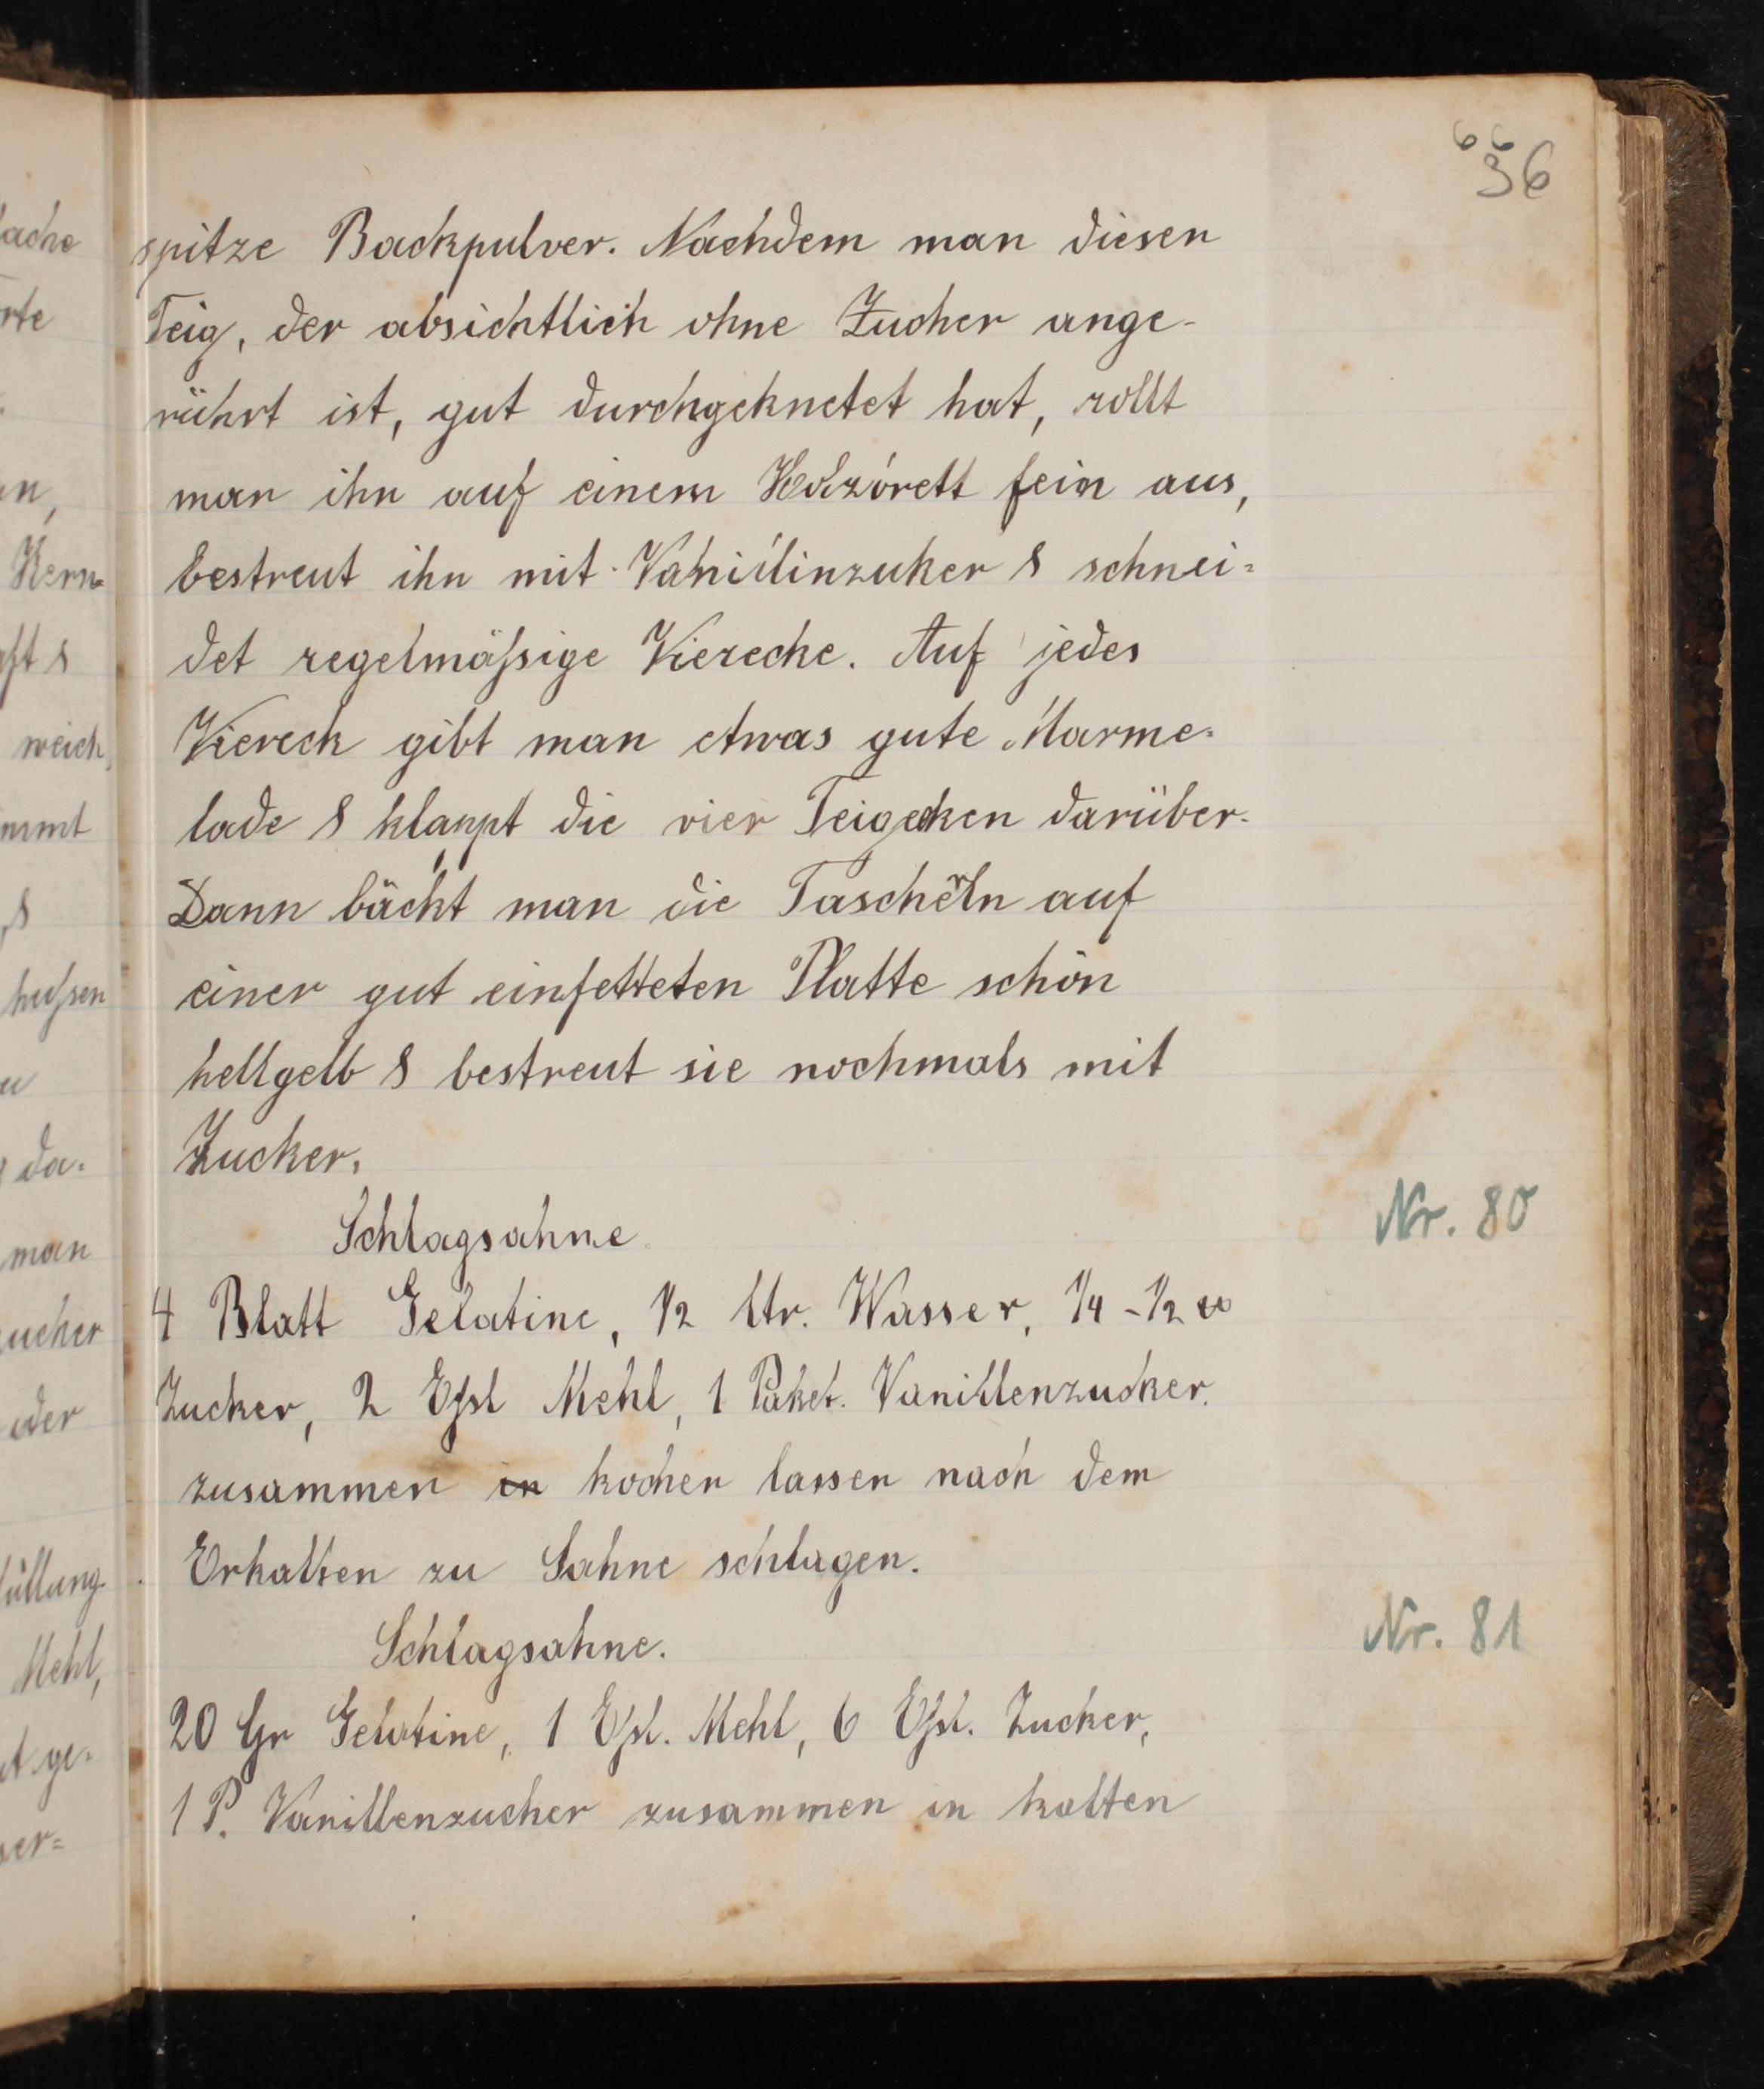 66
36
spitze Backpulver. Nachdem man diesen
Teig, der absichtlich ohne Zucker ange-
rührt ist, gut durchgeknetet hat, rollt
man ihn auf einem Holzbrett fein aus,
bestreut ihn mit Vanillinzuker & schnei=
det regelmäßige Vierecke. Auf jedes
Viereck gibt man etwas gute Marme-
lade & klappt die vier Teigecken darüber.
Dann bäckt man die Tascherln auf
einer gut einfetteten Platte schön
hellgelb & bestreut sie nochmals mit
Zucker.
Schlagsahne
Nr. 80
4 Blatt Gelatine, 1/2 ltr. Wasser, 1/4 - 1/2 ℔
Zucker, 2 Eßl Mehl, 1 Paket. Vanillenzucker.
zusammen in kochen lassen nach dem
Erkalten zu Sahne schlagen.
Schlagsahne.
Nr. 81
20 Gr Gelatine, 1 Eßl. Mehl, 6 Eßl. Zucker,
1 P. Vanillenzucker zusammen in kalten